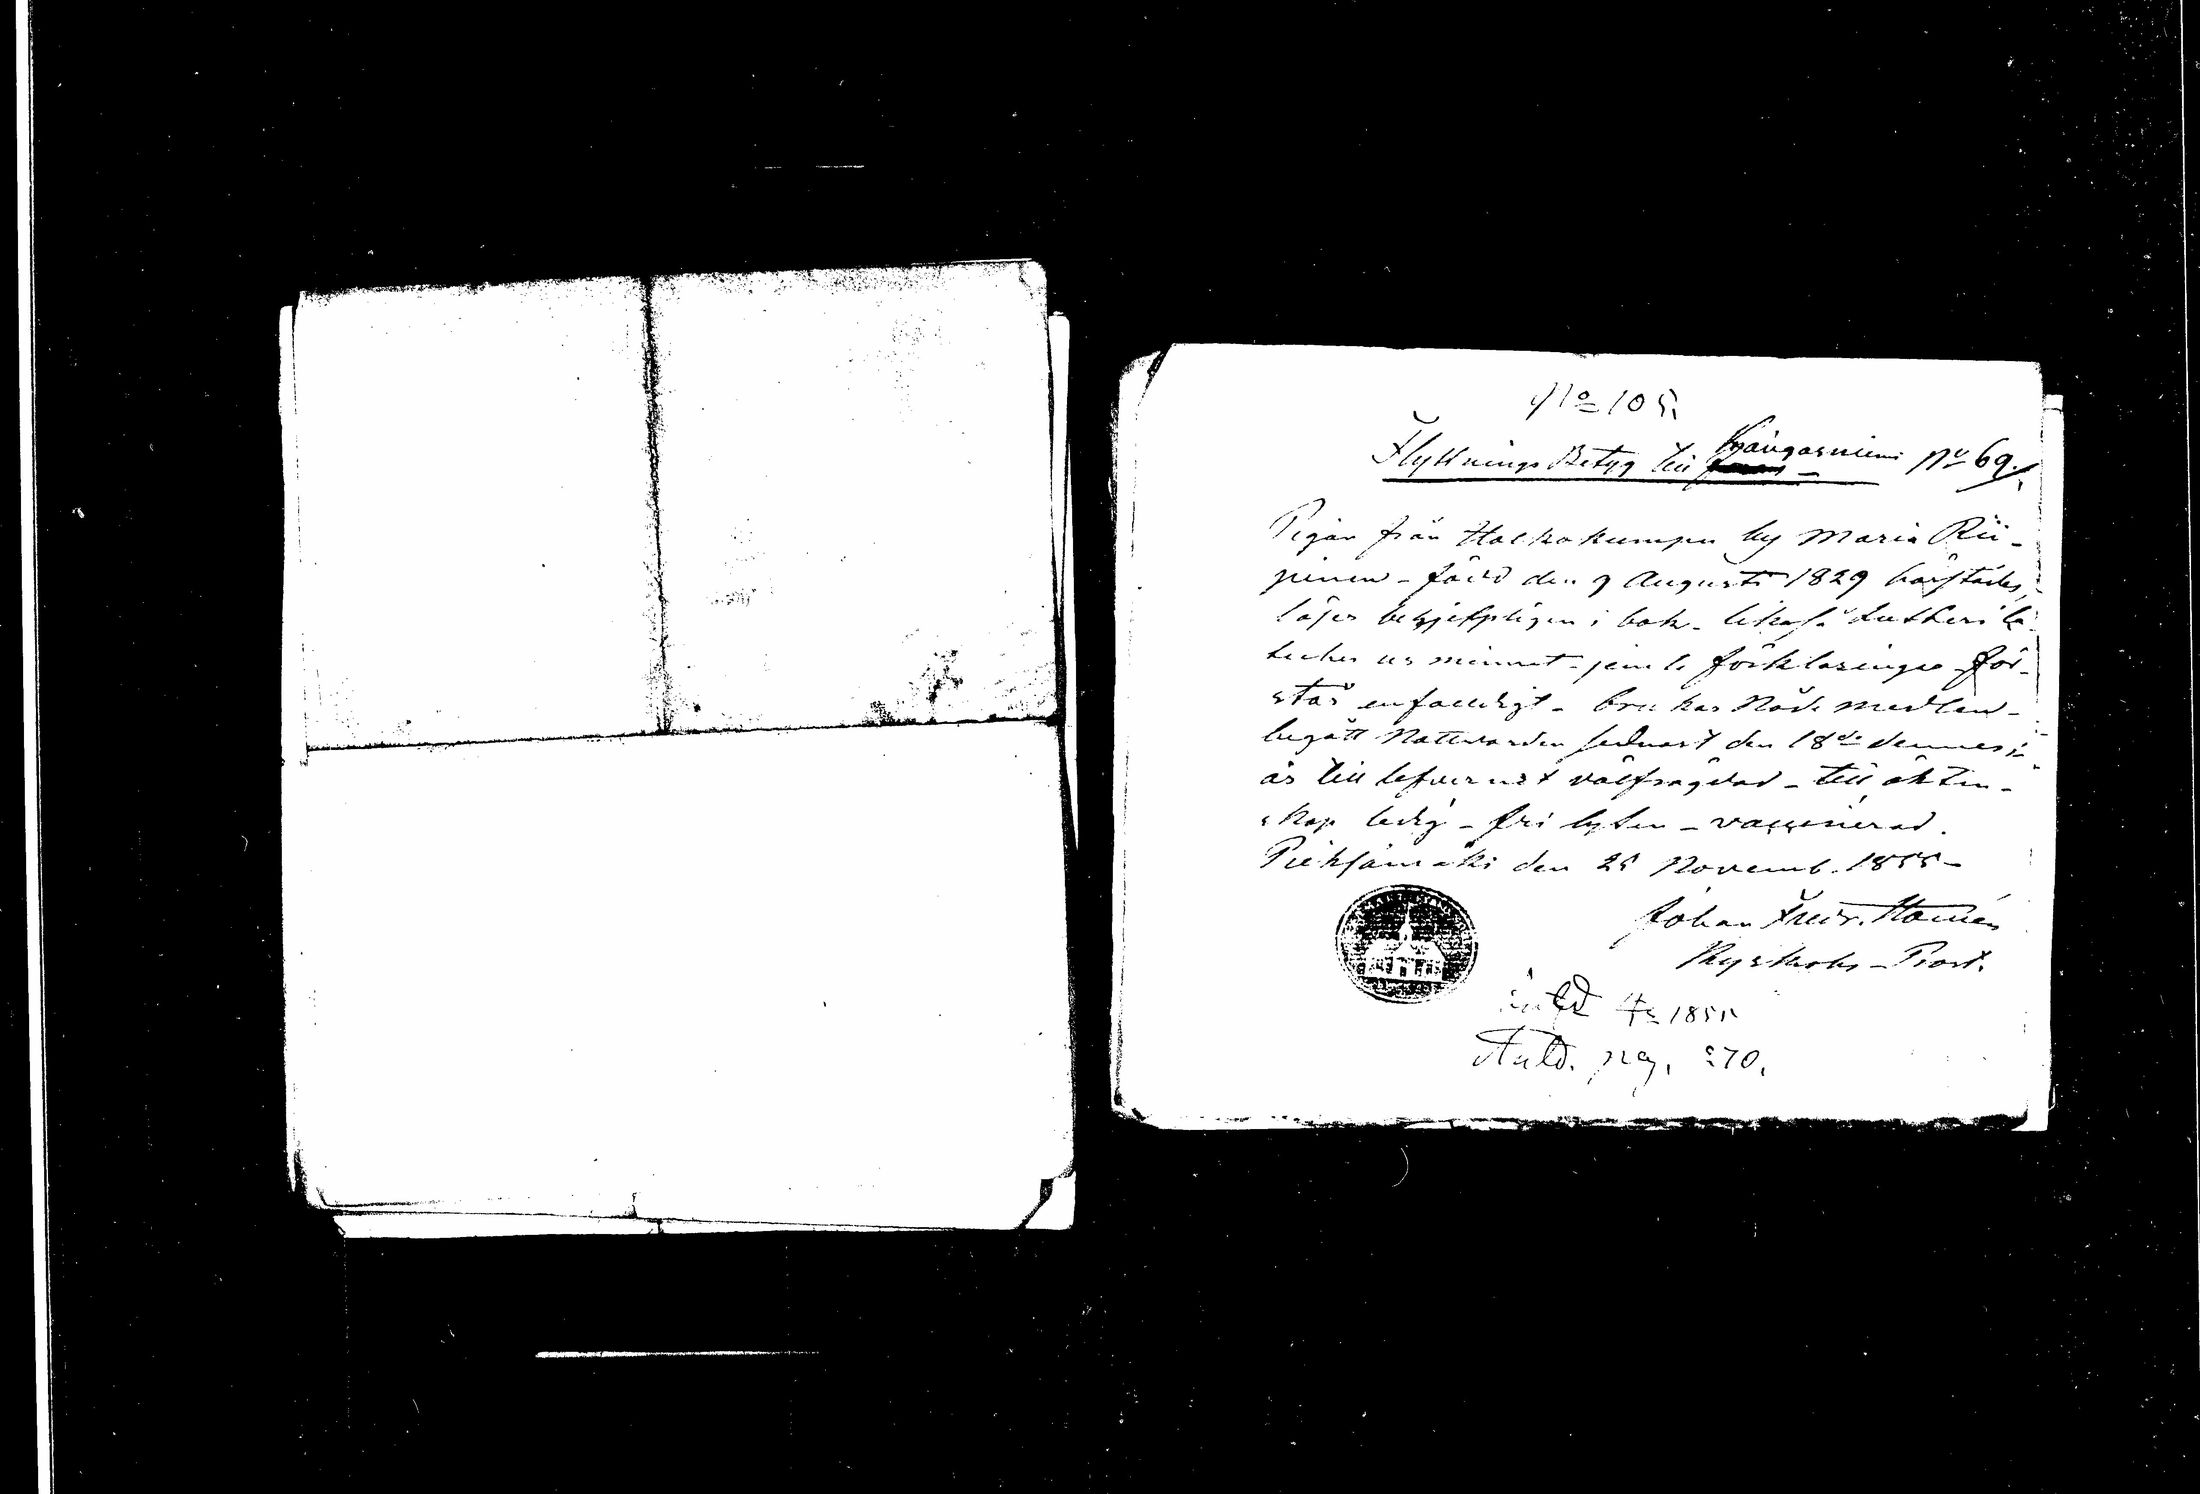 No 105.
Flyttnings Betyg till Kangasniemi No 69.
Pigan från Halkokumpu by Maria Rii-
pinen - född den 9 Augusti 1829 härstädes,
läser begripeligen i bok - likaså Lutheri ca-
teches ur minnet - jemte förklaringen för-
står enfaldigt - brukar Nåde medlen -
begått Nattvarden sednast den 18de dennes,
är till lefvernet välfrägdad - till äkten-
skap ledig - fri lyten - vaccinerad.
Pieksämäki den 25 Novemb. 1855 -
Johan Fredr.
Kyrkoh - Prost.
1855
Anld. pag. 270.